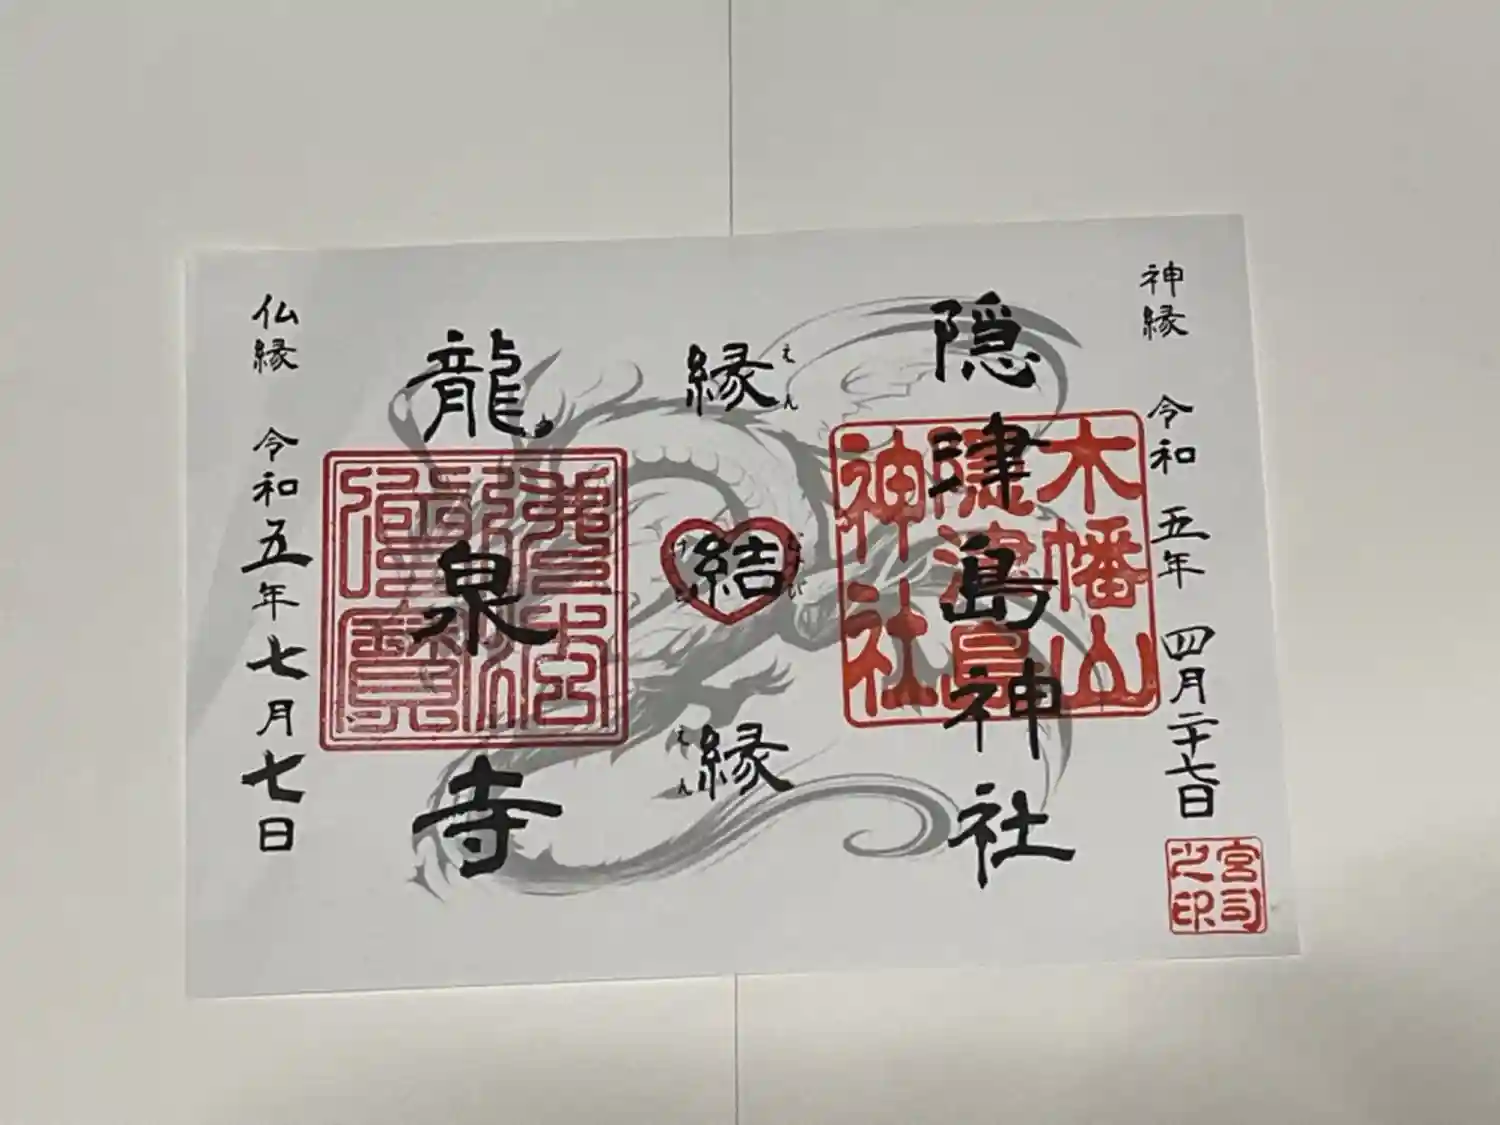 神縁 令和五年 四月二十七日
隠津島神社
木幡山
隠津島
神社
宮司
之印
縁 結 縁
えん
むすび
けち
えん
龍泉寺
仏縁 令和五年七月七日